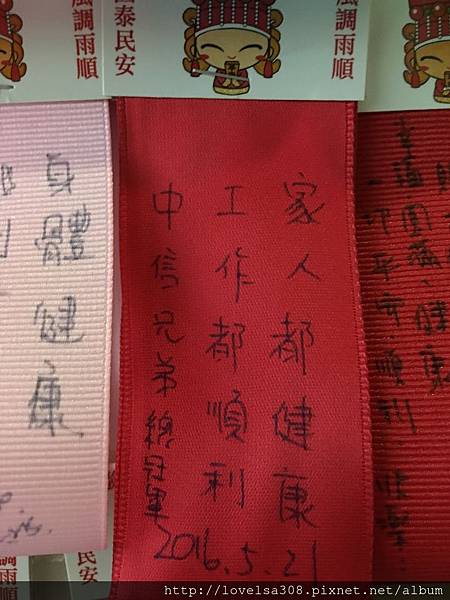 風調雨順
國泰民安
風調雨順
國泰民安
家人都健康
工作都順利
中信兄弟總冠軍
2016.5.21
身體健康
幸福圓滿.健康
平安順利.
調雨順
國泰
民安
http://lovelsa308.pixnet.net/album